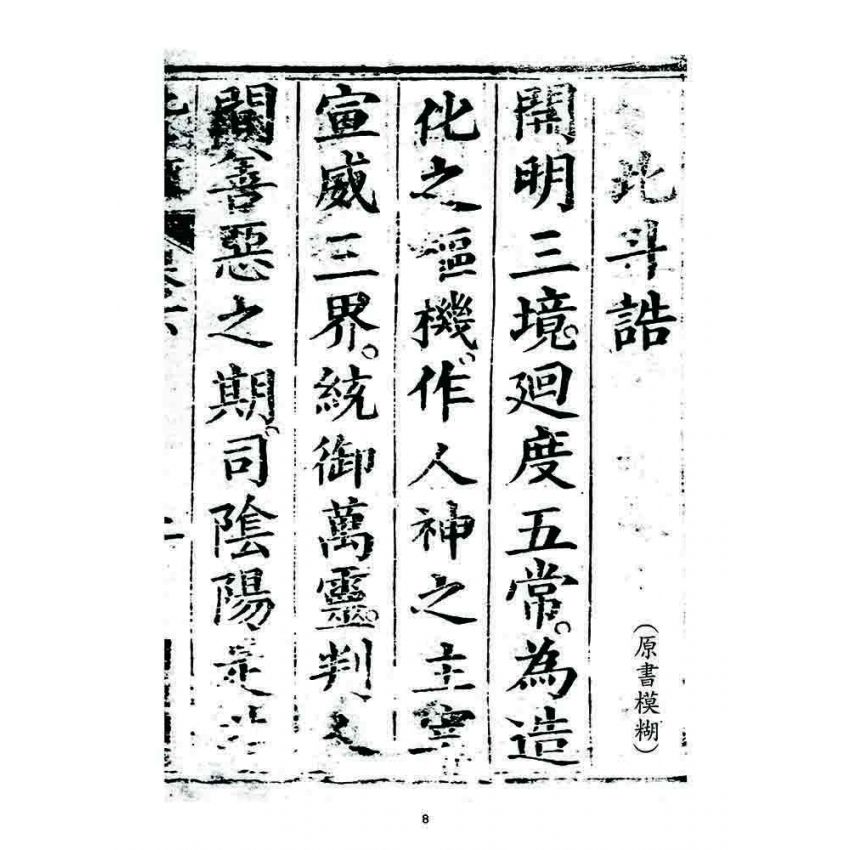 北斗誥
（原書模糊）
開明三境。廻度五常。為造
化之樞機。作人神之主宰
宣威三界。統御萬靈。判人
間善惡之期。司陰陽是非
8